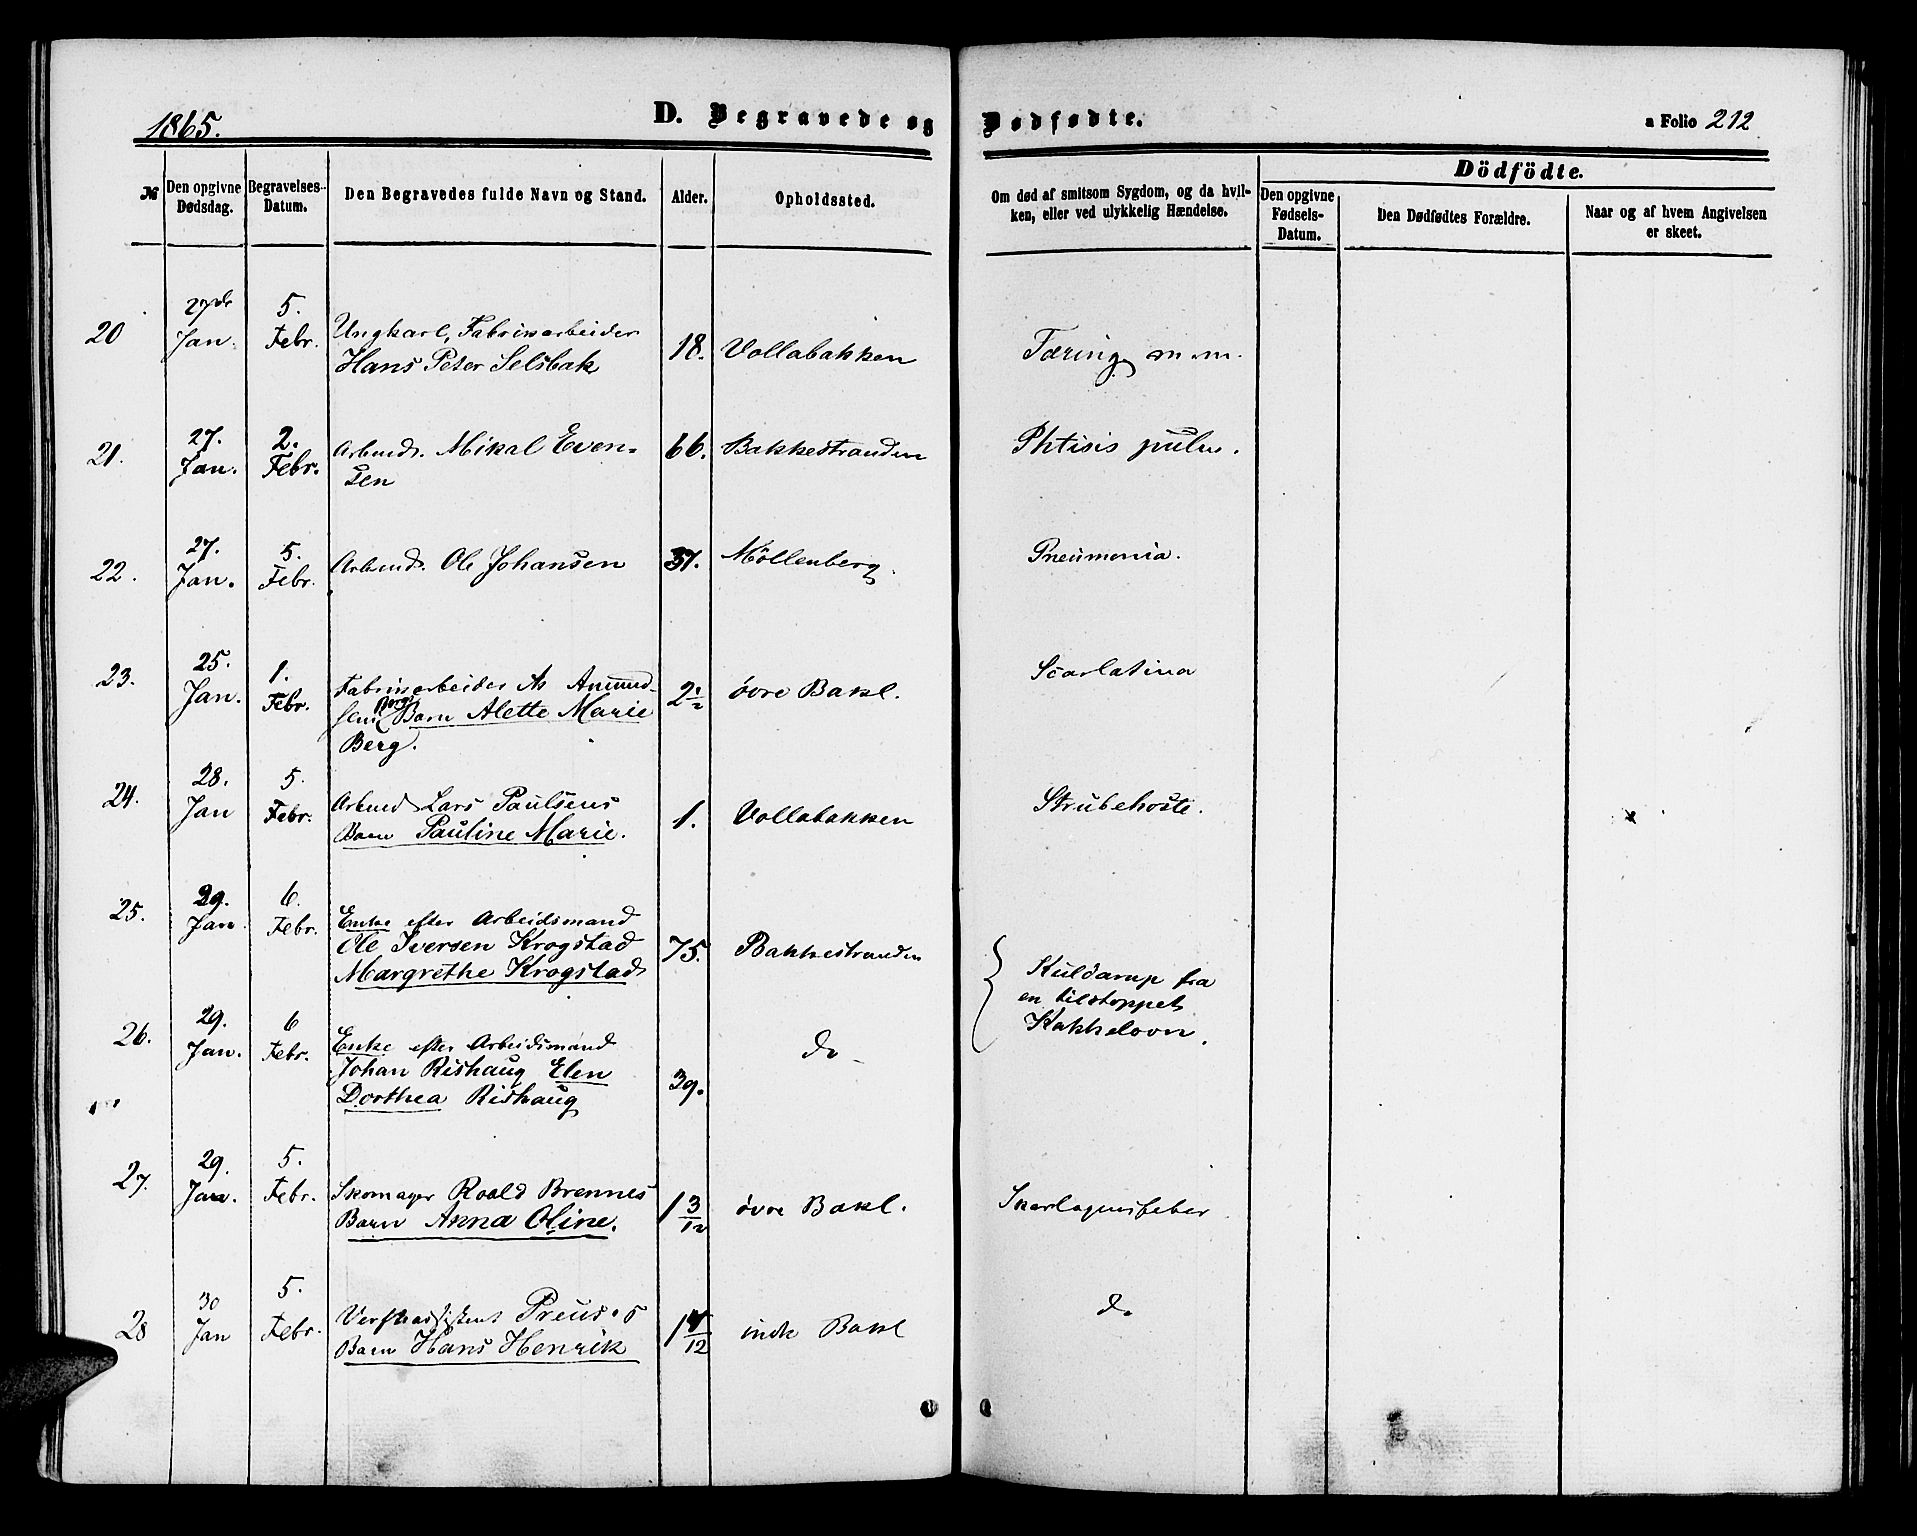 1865.
D. Begravede og Dødfødte.
a Folio 212
Dödfödte.
№
Den opgivne Dødsdag.
Begravelses-Datum.
Den Begravedes fulde Navn og Stand.
Alder.
Opholdssted.
Om død af smitsom Sygdom, og da hvil-
ken, eller ved ulykkelig Hændelse.
Den opgivne Fødsels-Datum.
Den Dødfødtes Forældre.
Naar og af hvem Angivelsen
er skeet.
20
27de Jan.
5. Febr.
Ungkarl, Fabrikarbeider
Hans Peter Selsbak
18.
Vollabakken
Tæring m. m.
21.
27. Jan.
2. Febr.
Arbmd. Mikal Even-
sen
66.
Bakkestranden
Phtisis pulm.
22.
27. Jan.
5. Febr.
Arbmd. Ole Johansen
57.
Möllenberg.
Pneumonia.
23.
25. Jan.
1. Febr.
Fabrikarbeider As Amund-
sens Berg Barn Alette Marie
Berg.
2½
övre Bakl.
Scarlatina
24.
28. Jan
5. Febr.
Arbmd Lars Paulsens
Barn Pauline Marie.
1.
Vollabakken
Strubehoste.
25.
29. Jan.
6. Febr.
Enke efter Arbeidsmand
Ole Iversen Krogstad
Margrethe Krogstad
75.
Bakkestranden
Kuldamp fra
en tilstoppet
Kakkelovn.
26.
29. Jan.
6 Febr.
Enke efter Arbeidsmand
Johan Rishaug Elen
Dorthea Rishaug
39.
do
27.
29. Jan.
5. Febr.
Skomager Roald Brennes
Barn Anna Oline.
1 3/12
övre Bakl.
Skarlagensfeber
28
30 Jan
5. Febr.
Preus's
Barn Hans Henrik
1 /12
indr Bakl
do